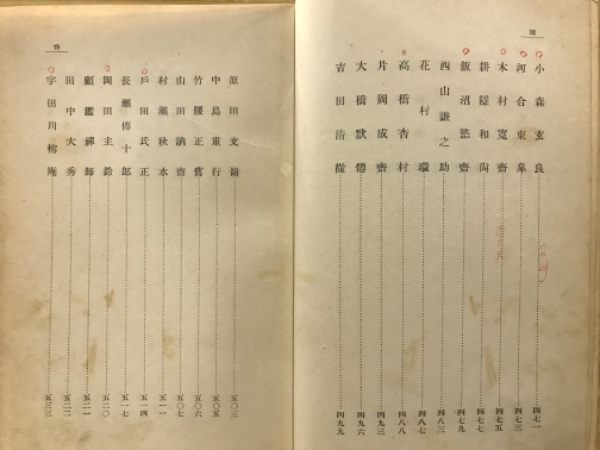 小森玄良 四七一
河合東皐 四七三
木村寛齋 四七五
耕隱和尚 四七七
飯沼慾齋 四七九
西山謙之助 四八三
花村環 四八七
高橋杏村 四八八
片岡成齋 四九三
大橋默僊 四九六
吉田清 四九九
原田文嶺 五〇三
中島重行 五〇五
竹腰正舊 五〇六
山田訥齋 五〇七
村瀬秋水 五一一
戶田氏正 五一四
長瀬傳十郎 五一七
岡田主鈴 五二〇
顧鑑禪師 五二一
田中大秀 五二二
宇田川榕庵 五三三